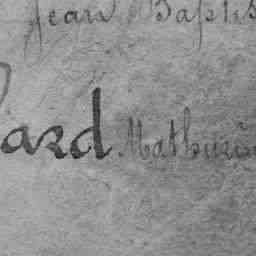 Jean Baptis
ard Mathurin